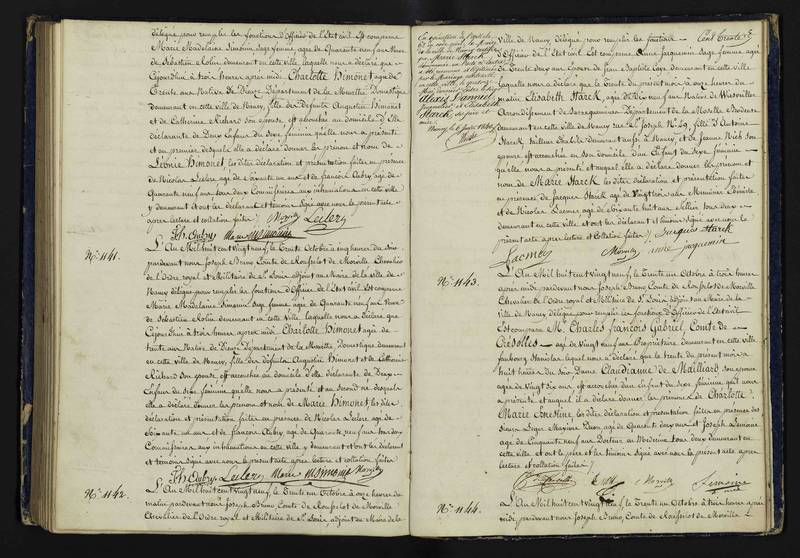 délégué, pour remplir les fonctions d'Officier de l'Etat civil. Est comparue
Marie Madelaine Simonin, Sage femme, agée de Quarante neuf ans Veuve
de Sébastien Colin, demeurant en cette ville, laquelle nous a déclaré que
Cejourd'hui à trois heures après midi, Charlotte Himonet agée de
trente ans Native de Département de la Meurthe, Domestique
demeurant en cette ville de Nancy, fille des Défunts Augustin Himonet
et de Catherine Richard son épouse, est accouchée au domicile d'Elle
déclarante de Deux Enfans du Sexe féminin qu'elle nous a présenté
et au premier desquels elle a déclaré donner les prénom et nom de
Léonie Himonet, les dites déclaration et présentation faites en présence
de Nicolas Leclerc agé de soixante un ans et de françois Aubry agé de
Quarante neuf ans, tous deux Commissionnaires, aux inhumations en cette ville
y demeurant et ont les déclarant et témoins Signé avec nous le présent acte
après lecture et collation faites
Fch. Aubry Marie Simonin Leclerc
N°. 1141.
L'An Mil huit cent vingt neuf, le Trente Octobre à cinq heures du Soir
pardevant nous Joseph Bruno Comte de Rousselot de Morville, Chevalier
de l'Ordre royal et Militaire de St. Louis adjoint au Maire de la ville de
Nancy délégué pour remplir les fonctions d'Officier de l'Etat civil Est comparue
Marie Madelaine Simonin Sage femme, agée de Quarante neuf ans Veuve
de Sébastien Colin demeurant en cette ville, laquelle nous a déclaré que
Cejourd'hui à trois heures après midi, Charlotte Himonet agée de
trente ans Native de Département de la Meurthe, Domestique demeurant
en cette ville de Nancy, fille des Défunts Augustin Himonet et de Catherine
Richard son épouse, est accouchée au domicile d'Elle déclarante de Deux
Enfans du Sexe féminin qu'elle nous a présenté et au second desquels
elle a déclaré donner les prénom et nom de Marie Himonet, les dites
déclaration et présentation faites en présence de Nicolas Leclerc agé de
Soixante un ans et de françois Aubry agé de Quarante neuf ans tous deux
Commissionnaires aux inhumations en cette ville y demeurant et ont les déclarant
et témoins Signé avec nous le présent acte après lecture et collation faites
Fch. Aubry Leclerc Marie Simonin
N°. 1142.
L'An Mil huit cent vingt neuf, le Trente un Octobre à onze heures du
matin pardevant nous Joseph Bruno Comte de Rousselot de Morville
Chevalier de l'Ordre royal et Militaire de St. Louis, adjoint au Maire de la
Marie Starck
Alexis
Starck
Nancy, le 6 1846
ville de Nancy délégué pour remplir les fonctions
Cent Trente
d'Officier de l'Etat civil Est comparue Anne Jacquemin Sage femme agée
de Trente deux ans Epouse de Jean Baptiste demeurant en cette ville
laquelle nous a déclaré que le Trente du présent mois à onze heures du
matin, Elisabeth Starck, agée de Dix neuf ans Native de Wiesviller
Arrondissement de Sarreguemines, Département de la Moselle, Brodeuse
demeurant en cette ville de Nancy rue St. Joseph N°. 29, fille d'Antoine
Starck, tailleur d'habits demeurant audit Nancy, et de Jeanne
son épouse est accouchée en son domicile d'un Enfant du Sexe féminin
qu'elle nous a présenté et auquel elle a déclaré donner les prénom et
nom de Marie Starck les dites déclaration et présentation faites
en présence de Jacques Starck agé de Vingt trois ans Menuisier Ebéniste
et de Nicolas agé de Soixante huit ans Sellier, tous deux
demeurant en cette ville et ont les déclarant et témoins Signé avec nous le
présent acte après lecture et Collation faites
Jacques Starck
anne jacquemin
N°. 1143.
L'An Mil huit cent vingt neuf, le Trente un Octobre à trois heures
après midi, pardevant nous Joseph Bruno Comte de Rousselot de Morville
Chevalier de l'Ordre royal et Militaire de St. Louis adjoint au Maire de la
ville de Nancy délégué, pour remplir les fonctions d'Officier de l'Etat civil
Est comparu Mr. Charles François Gabriel Comte de
Crésolles agé de Vingt neuf ans Propriétaire demeurant en cette ville
faubourg Stanislas, lequel nous a déclaré que le trente du présent mois à
huit heures du Soir Dame Claudianne de Mailliard son épouse
agée de Vingt Six ans est accouchée d'un Enfant du Sexe féminin qu'il nous
a présenté et auquel il a déclaré donner les prénoms de Charlotte
Marie Ernestine les dites déclaration et présentation faites en présence des
Sieurs Léger Maximin agé de Quarante deux ans et Joseph Lemoine
agé de Cinquante neuf ans Docteur en Médecine tous deux demeurant en
cette ville et ont le père et les témoins Signé avec nous le présent acte après
lecture et collation faites
Lemoine
N°. 1144.
L'An Mil huit cent vingt neuf, le Trente un Octobre à trois heures après
midi, pardevant nous Joseph Bruno, Comte de Rousselot de Morville